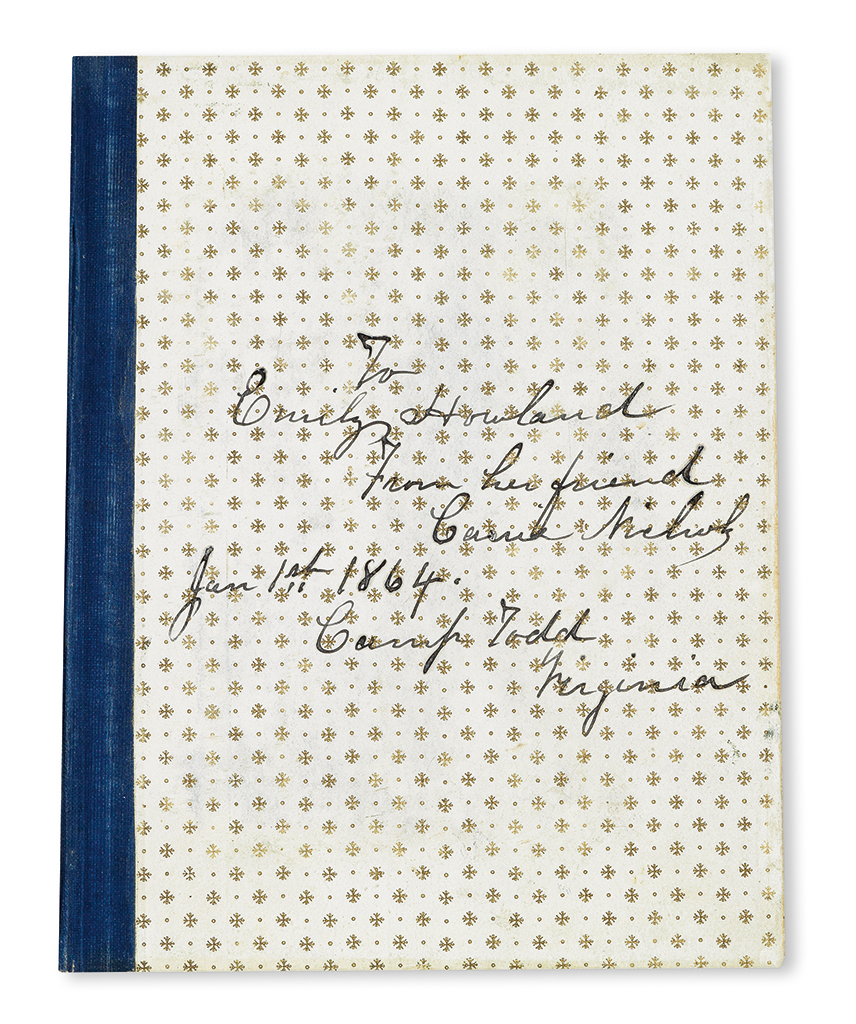 To
Emily Howland
From her friend
Carrie Nichols
Jan 1st 1864.
Camp Todd
Virginia